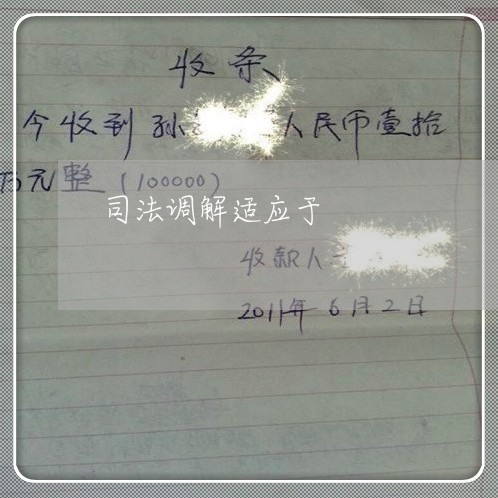 收条
今收到孙 人民币壹拾
万元整（100000）
司法调解适应于
收款人
2011年6月2日